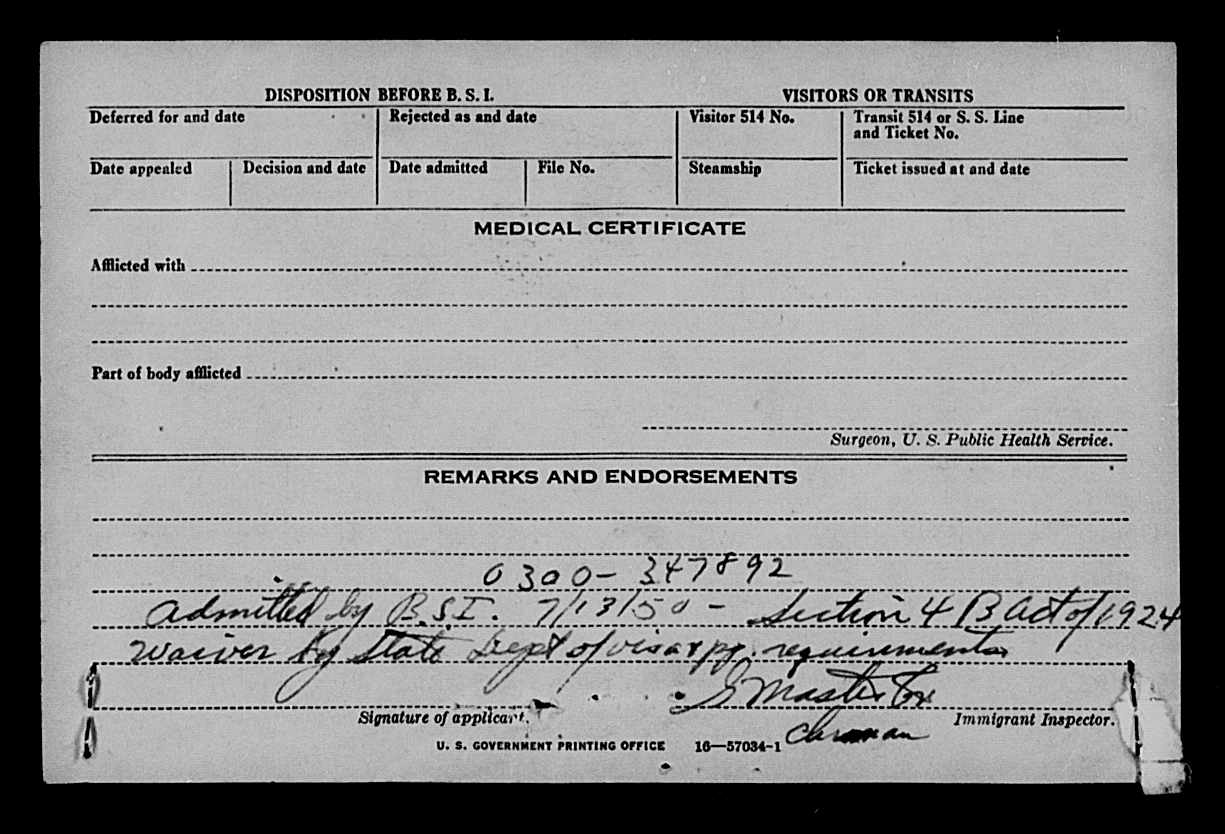 DISPOSITION BEFORE B. S. I. VISITORS OR TRANSITS
Deferred for and date Rejected as and date Visitor 514 No. Transit 514 or S. S. Line
and Ticket No.
Date appealed Decision and date Date admitted File No. Steamship Ticket issued at and date
MEDICAL CERTIFICATE
Afflicted with
Part of body afflicted
Surgeon, U. S. Public Health Service.
REMARKS AND ENDORSEMENTS
0300-347892
Admitted by B.S.I. 7/13/50 - Section 4 B Act of 1924
waiver by State Dept of visa & pp. requirements
Signature of applicant. Immigrant Inspector.
U. S. GOVERNMENT PRINTING OFFICE 16—57034-1